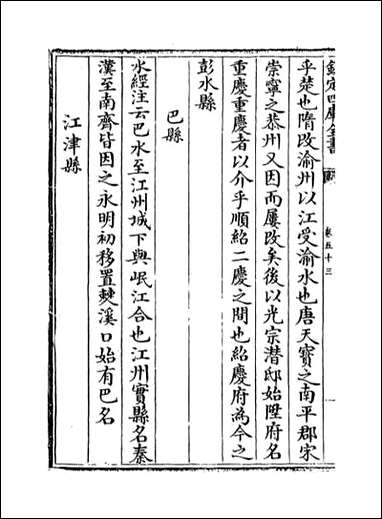 欽定四庫全書
卷五十三
乎楚也隋改渝州以江受渝水也唐天寶之南平郡宋
崇寧之恭州又因而屢改矣後以光宗潛邸始陞府名
重慶重慶者以介乎順紹二慶之間也紹慶府為今之
彭水縣
巴縣
水經注云巴水至江州城下與岷江合也江州實縣名秦
漢至南齊皆因之永明初移置僰溪口始有巴名
江津縣